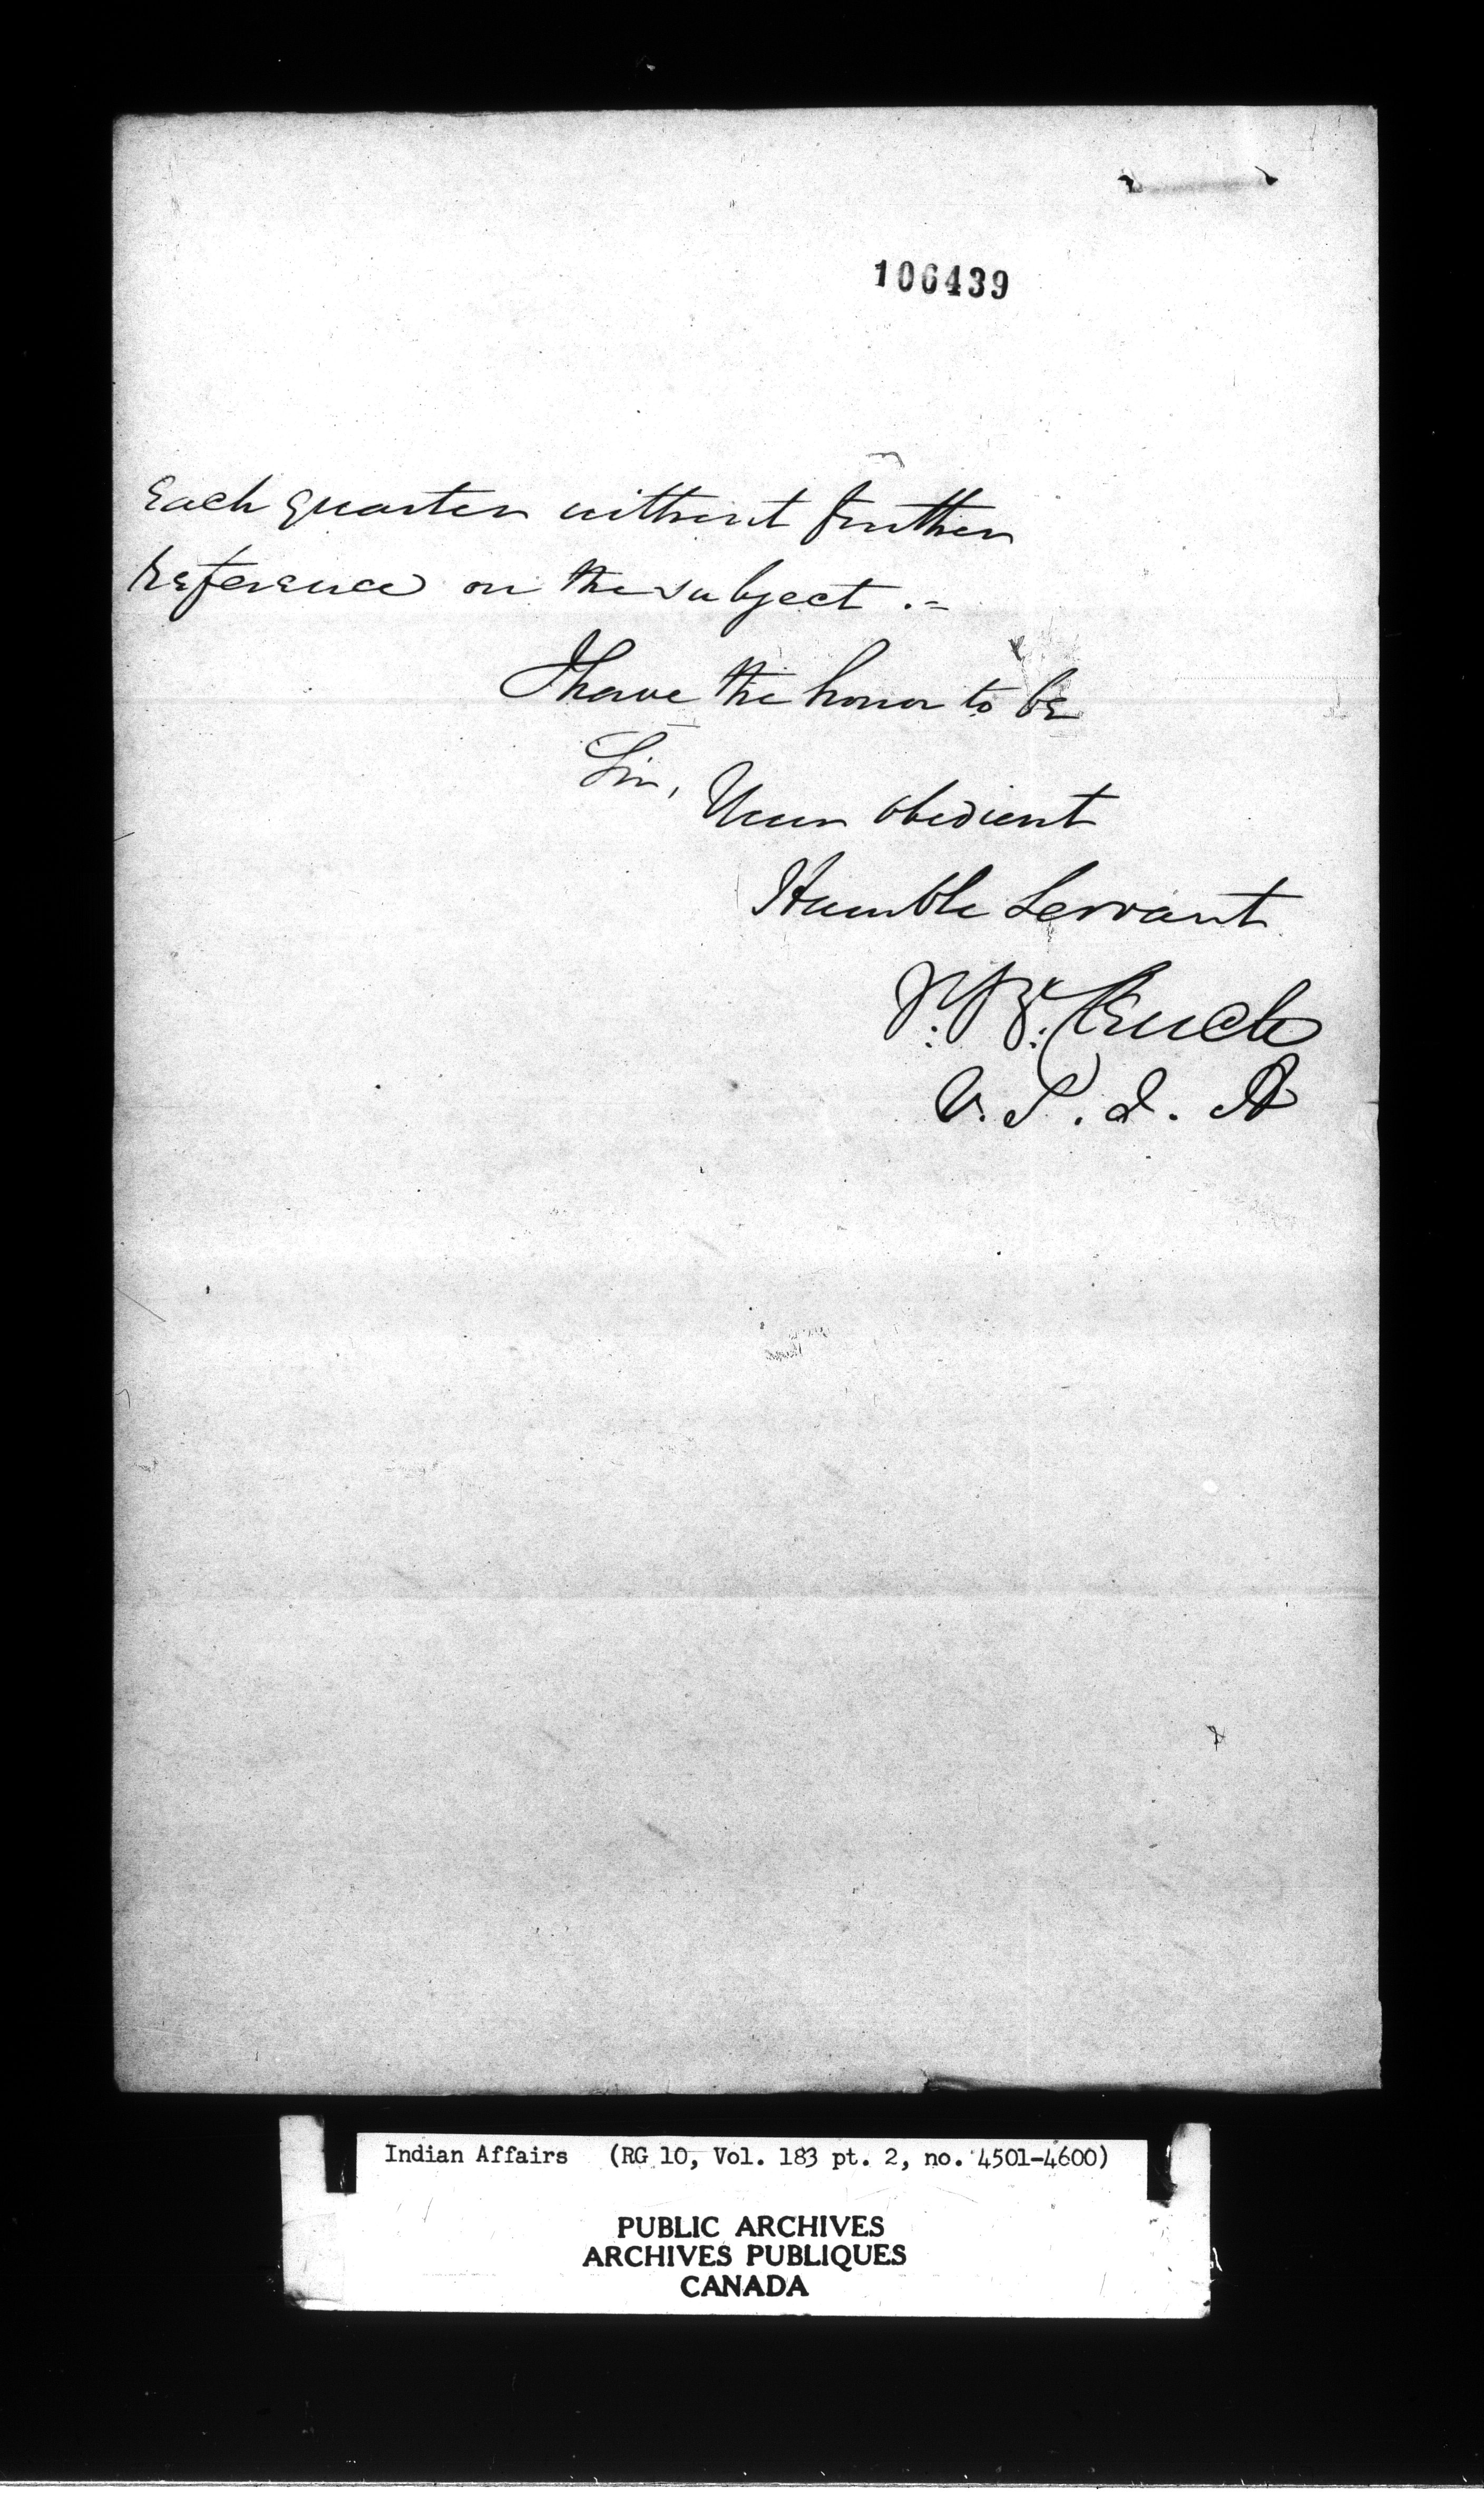 106439
Each quarter without further
reference on the subject .=
I have the honor to be
Sir,
Your obedient
Humble Servant
V. S. I. A
Indian Affairs (RG 10, Vol. 183 pt. 2, no. 4501-4600)
PUBLIC ARCHIVES
ARCHIVES PUBLIQUES
CANADA